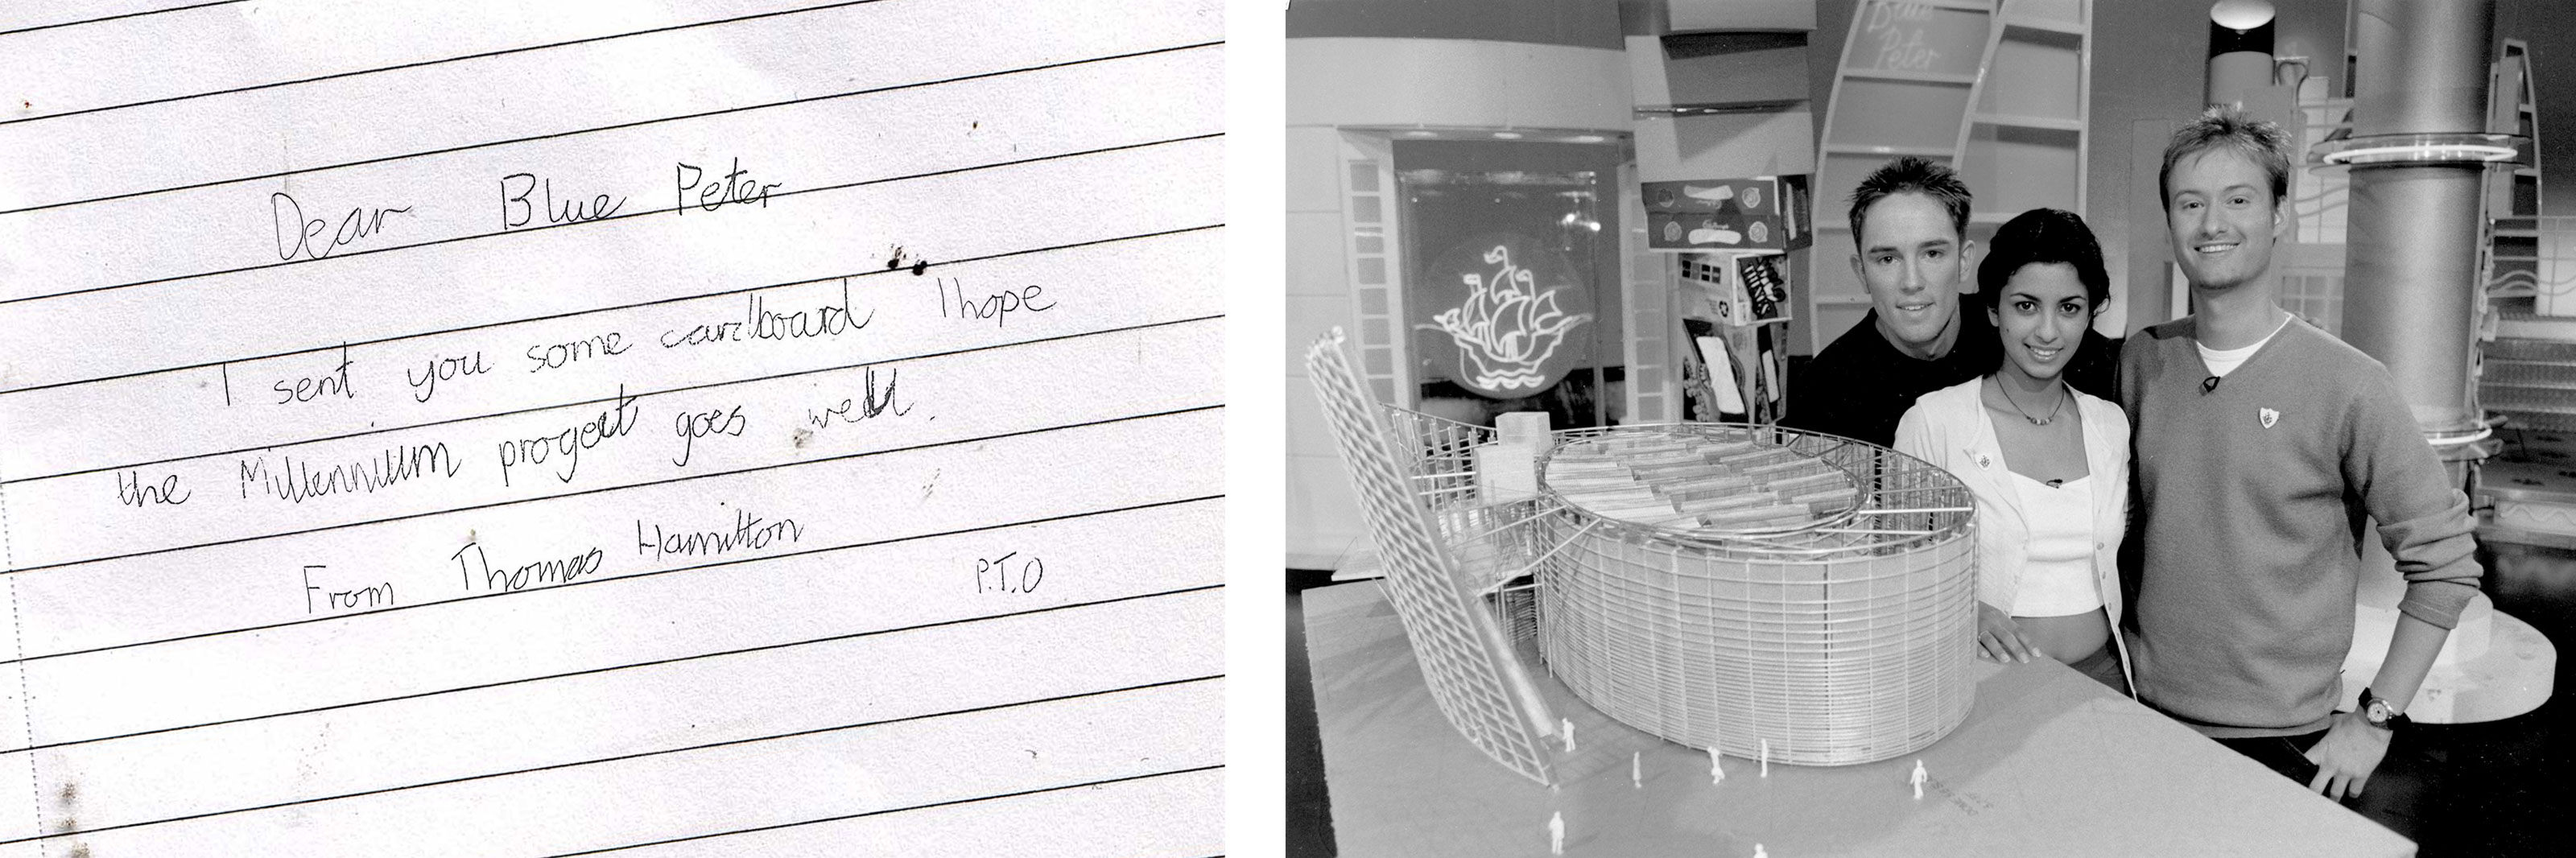 Dear Blue Peter
I sent you some cardboard I hope
the Millennium progect goes well.
From Thomas Hamilton
P.T.O
Blue
Peter